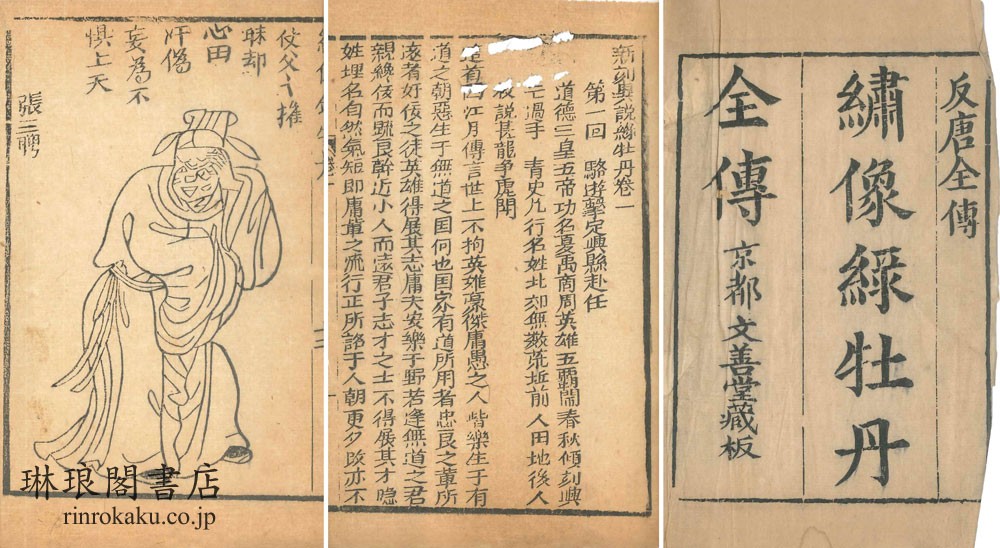 反唐全傳
繡像綠牡丹
全傳 京都文善堂藏板
新刻異說綠牡丹卷一
第一回 駱遊擊定興縣赴任
道德三皇五帝功名夏禹商周英雄五霸鬧春秋傾刻興
亡過手 青史几行名姓北邙無數荒坵前人田地後人
收說甚龍爭虎鬬
這首西江月傳言世上不拘英雄豪傑庸愚之人皆樂生于有
道之朝惡生于無道之国何也国家有道所用者忠良之輩所
遠者好佞之徒英雄得展其志庸夫安樂于野若逢無道之君
親讒佞而疏良幹近小人而遠君子志才之士不得展其才隱
姓埋名自然氣短即庸輩之流行正所謂于人朝更夕改亦不
仗父之權
昧却
心田
奸偽
妄為不
懼上天
張三聘
琳琅閣書店
rinrokaku.co.jp